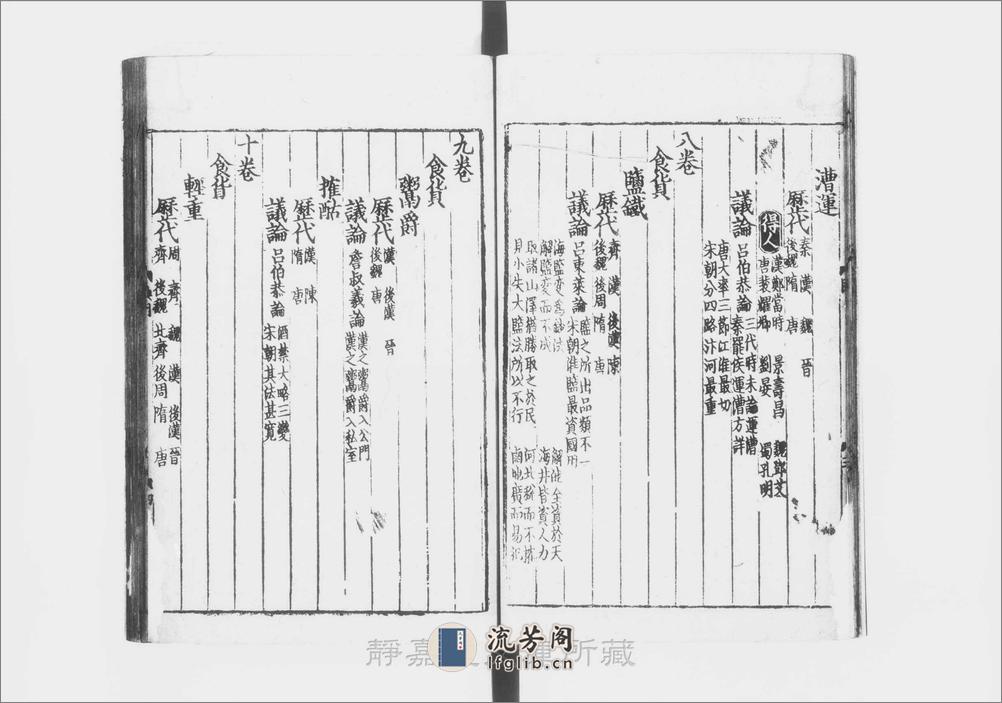 漕運
歷代 秦 漢 魏 晉
後魏 隋 唐
得人 漢鄭當時 景壽昌 魏鄧艾
唐裴耀卿 劉晏 蜀孔明
議論 呂伯恭論 三代時未論運漕
秦罷侯運漕方詳
唐大率三節江淮最切
宋朝分四路汴河最重
八卷
食貨
鹽鐵
歷代 齊 漢 後漢 陳
後魏 後周 隋 唐
議論 呂東萊論 鹽之所出品類不一
宋朝淮鹽最資國用
海鹽變為鈔法 解池全資於天
解鹽變而不成 海井皆資人力
取諸山澤猶勝取之於民
見小失大鹽法所以不行 鹵地廣而易
九卷
食貨
鬻爵
歷代 漢 後漢 晉
後魏 唐
議論 詹叔義論 漢之鬻爵入公門
漢之鬻爵入私室
榷酤
歷代 漢 陳
隋 唐
議論 呂伯恭論 酒禁大略三變
宋朝其法甚寬
十卷
食貨
輕重
歷代 周 齊 魏 漢 後漢 晉
齊 後魏 北齊 後周 隋 唐
靜嘉 所藏
流芳阁
lfglib.cn